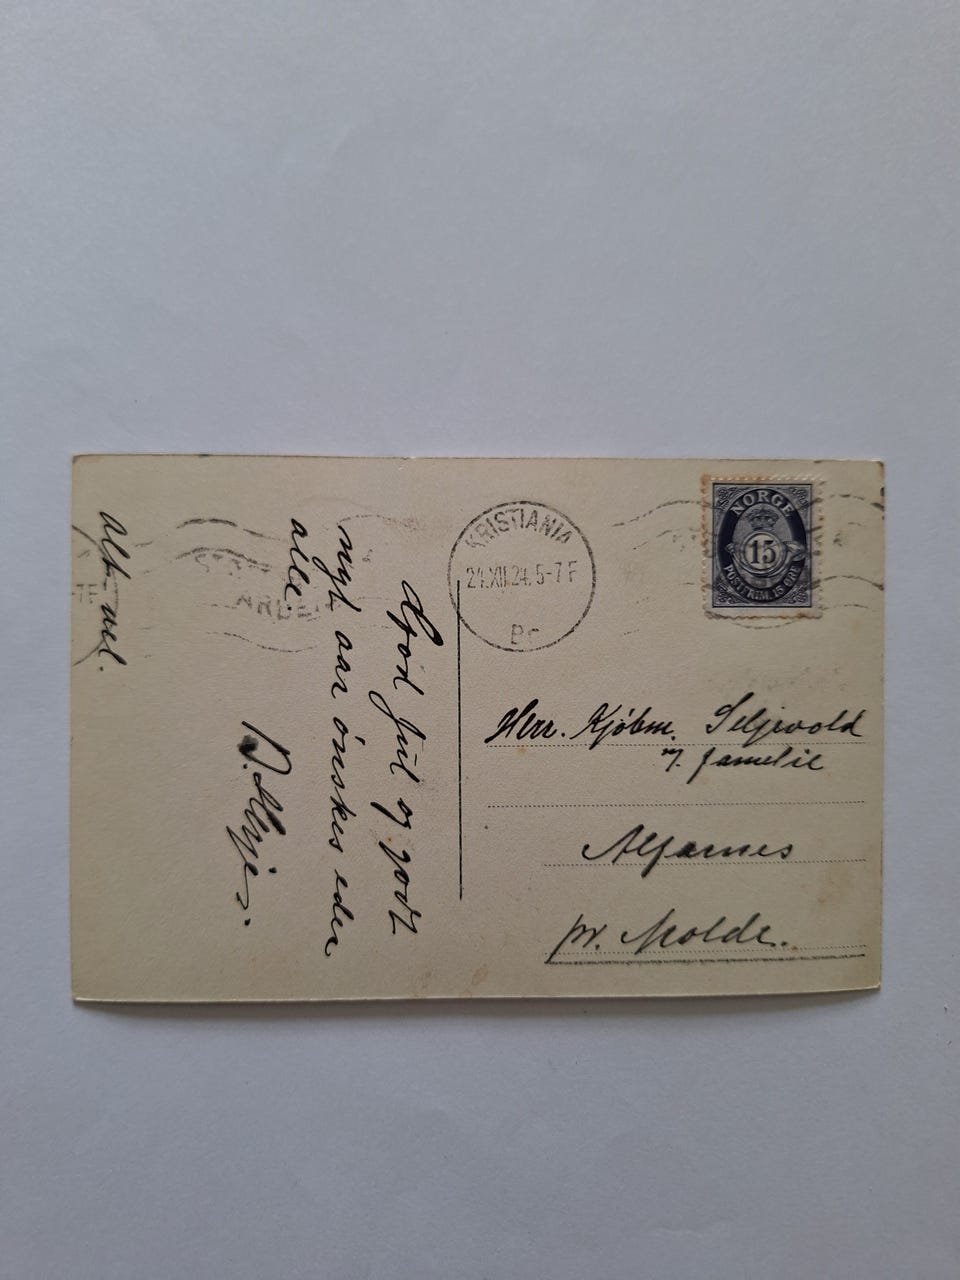 God jul og godt
nyt aar ónskes eder
alle
Alt vel.
KRISTIANIA
21.XII.24.5-7 F
Br
NORGE
15
POSTFRIM. 15 ØRE
Herr. Kjøbm. Seljevold
m/. famelie
Alfarnes
pr. Molde.